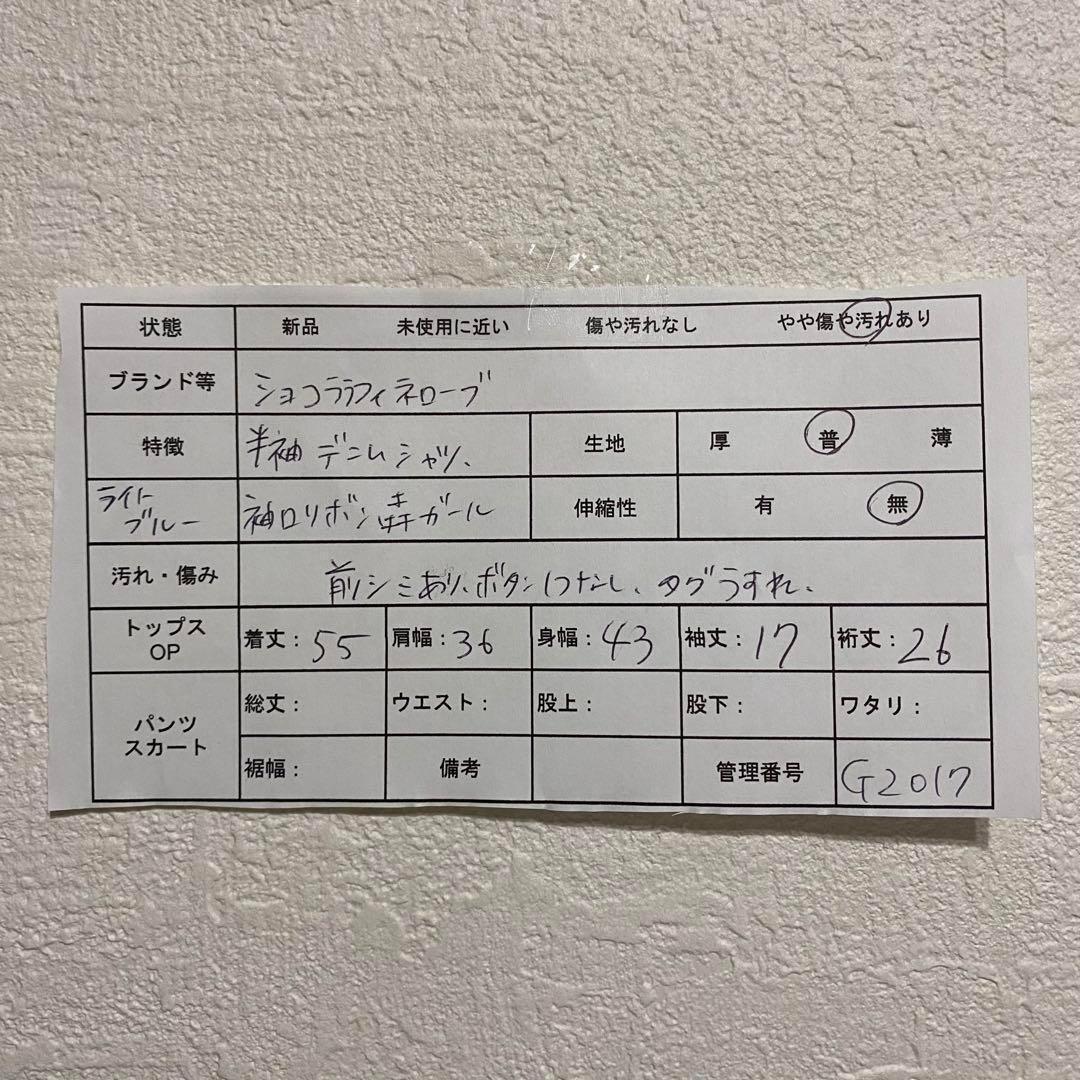 状態 新品 未使用に近い 傷や汚れなし やや傷や汚れあり
ブランド等 ショコララフィネローブ
特徴 半袖 デニムシャツ、 生地 厚 普 薄
ライトブルー 袖口リボン 森ガール 伸縮性 有 無
汚れ・傷み 前シミあり、ボタン1つなし、タグうすれ、
トップス OP 着丈：55 肩幅：36 身幅：43 袖丈：17 裄丈：26
パンツ スカート 総丈： ウエスト： 股上： 股下： ワタリ：
裾幅： 備考 管理番号 G2017